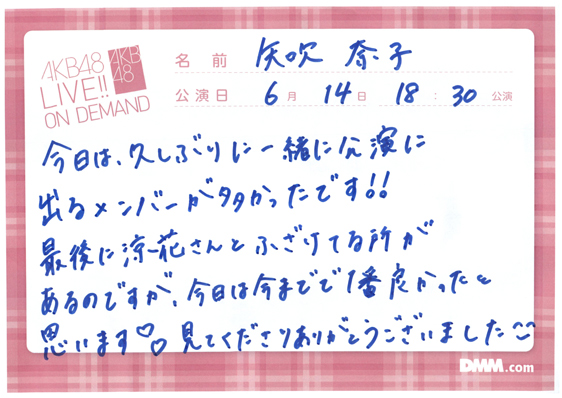 AKB48
LIVE!!
ON DEMAND
AKB
48
名前 矢吹 奈子
公演日 6月 14日 18:30 公演
今日は、久しぶりに一緒に公演に
出るメンバーが多かったです!!
最後に涼花さんとふざけてる所が
あるのですが、今日は今までで1番良かったと
思います♡♡ 見てくださりありがとうございました^^
DMM.com